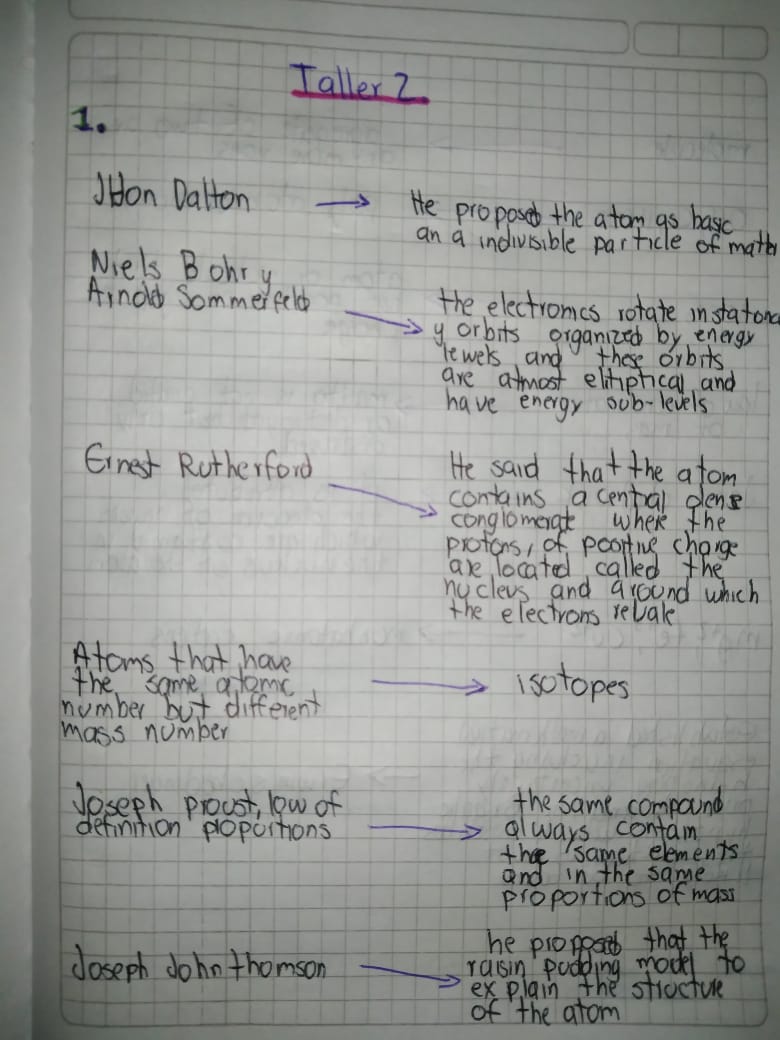 Taller 2
1.
Jhon Dalton → He proposed the atom as basic
an a indivisible particle of matter
Niels Bohr y
Arnold Sommerfeld → the electronics rotate in stationa
y orbits organized by energy
lewels and these orbits
are atmost elitiptical and
have energy sub-levels
Ernest Rutherford → He said that the atom
contains a central dense
conglomerate where the
protons, of positive charge
are located called the
nucleus and around which
the electrons
Atoms that have
the same atomic
number but different
mass number → isotopes
Joseph proust, low of
definition ploportions → the same compound
always contain
the same elements
and in the same
proportions of mass
Joseph John thomson → he proposed that the
raisin pudding model to
explain the structure
of the atom